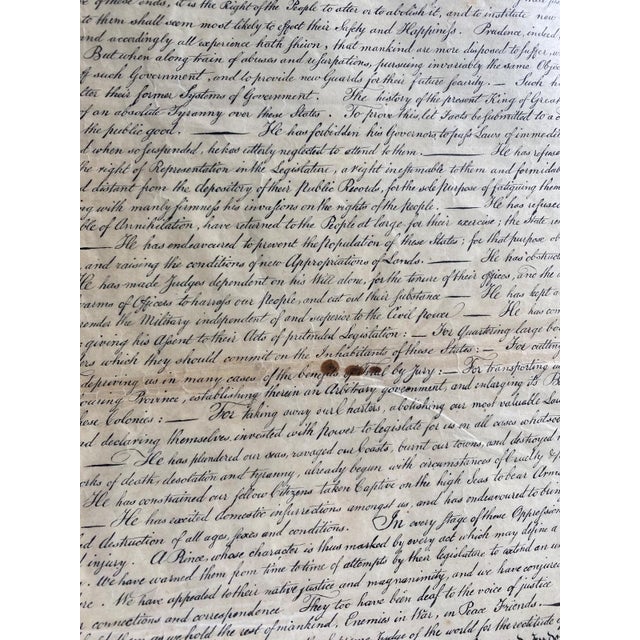 of these ends, it is the Right of the People to alter or to abolish it, and to institute new
to them shall seem most likely to effect their Safety and Happiness. Prudence, indeed,
and accordingly all experience hath shewn, that mankind are more disposed to suffer, w
But when a long train of abuses and usurpations, pursuing invariably the same Objec
off such Government, and to provide new Guards for their future security. — Such ha
lter their former Systems of Government. The history of the present King of Great
of an absolute Tyranny over these States. To prove this, let Facts be submitted to a c
the public good. — He has forbidden his Governors to pass Laws of immedi
d when so suspended, he has utterly neglected to attend to them. — He has refuse
the right of Representation in the Legislature, a right inestimable to them and formidab
d distant from the depository of their Public Records, for the sole purpose of fatiguing them
ng with manly firmness his invasions on the rights of the people. — He has refused
ble of Annihilation, have returned to the People at large for their exercise; the State re
— He has endeavoured to prevent the population of these States; for that purpose ob
, and raising the conditions of new Appropriations of Lands. — He has obstruc
He has made Judges dependent on his Will alone, for the tenure of their offices, and the
warms of Officers to harrass our People, and eat out their substance — He has kept a
render the Military independent of and superior to the Civil power — He has com
giving his Assent to their Acts of pretended Legislation: — For Quartering large bo
ders which they should commit on the Inhabitants of these States: — For cutting
depriving us in many cases of the benefits of Trial by Jury: — For transporting us
bouring Province, establishing therein an Arbitrary government, and enlarging its B
hese Colonies: — For taking away our Charters, abolishing our most valuable Law
and declaring themselves invested with Power to legislate for us in all cases whatsoe
— He has plundered our seas, ravaged our Coasts, burnt our towns, and destroyed
orks of death, desolation and tyranny, already begun with circumstances of Cruelty & p
He has constrained our fellow Citizens taken Captive on the high Seas to bear Arms
— He has excited domestic insurrections amongst us, and has endeavoured to brin
d destruction of all ages, sexes and conditions. In every stage of these Oppression
d injury. A Prince, whose character is thus marked by every act which may define a
. We have warned them from time to time of attempts by their legislature to extend an un
ere. We have appealed to their native justice and magnanimity, and we have conjured
r connections and correspondence They too have been deaf to the voice of justice
d them, as we hold the rest of mankind, Enemies in War, in Peace Friends. —
Judge of the world for the rectitude